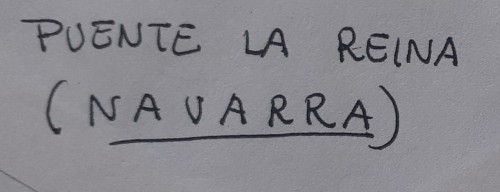 PUENTE LA REINA
(NAVARRA)